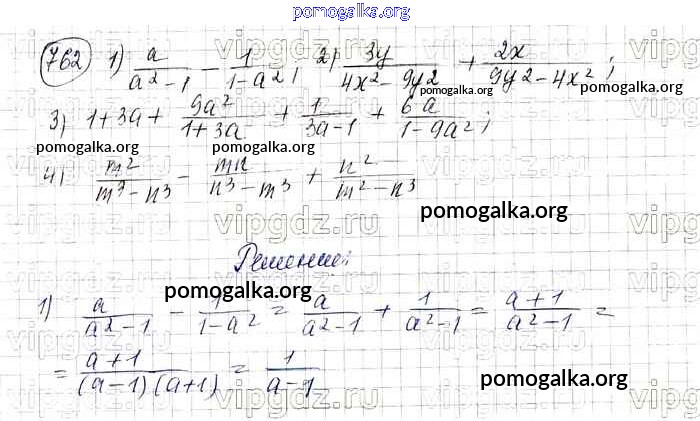 pomogalka.org
762 1) a/(a² - 1) - 1/(1 - a²); 2) 3y/(4x² - 9y²) + 2x/(9y² - 4x²);
pomogalka.org
3) 1 + 3a + 9a²/(1 + 3a) + 1/(3a - 1) + 6a/(1 - 9a²);
pomogalka.org pomogalka.org pomogalka.org
4) m²/(m³ - n³) - mn/(n³ - m³) + n²/(m² - n³)
pomogalka.org
Решение:
pomogalka.org
1) a/(a² - 1) - 1/(1 - a²) = a/(a² - 1) + 1/(a² - 1) = (a + 1)/(a² - 1) =
= (a + 1)/((a - 1)(a + 1)) = 1/(a - 1)
pomogalka.org
vipgdz.ru